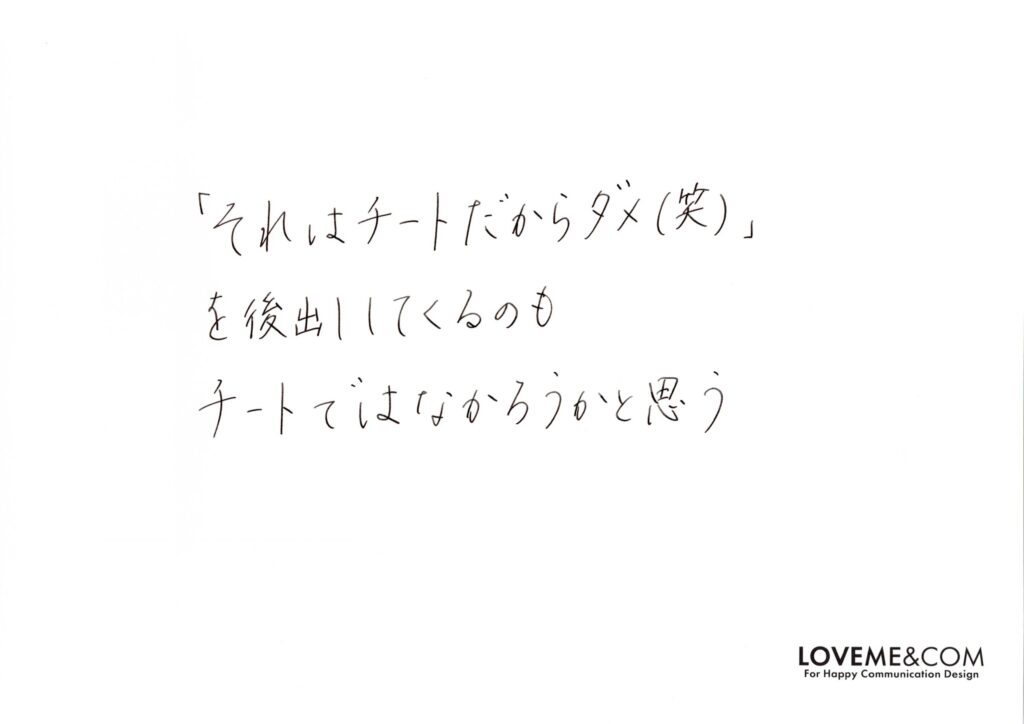 「それはチートだからダメ(笑)」
を後出ししてくるのも
チートではなかろうかと思う
LOVEME&COM
For Happy Communication Design